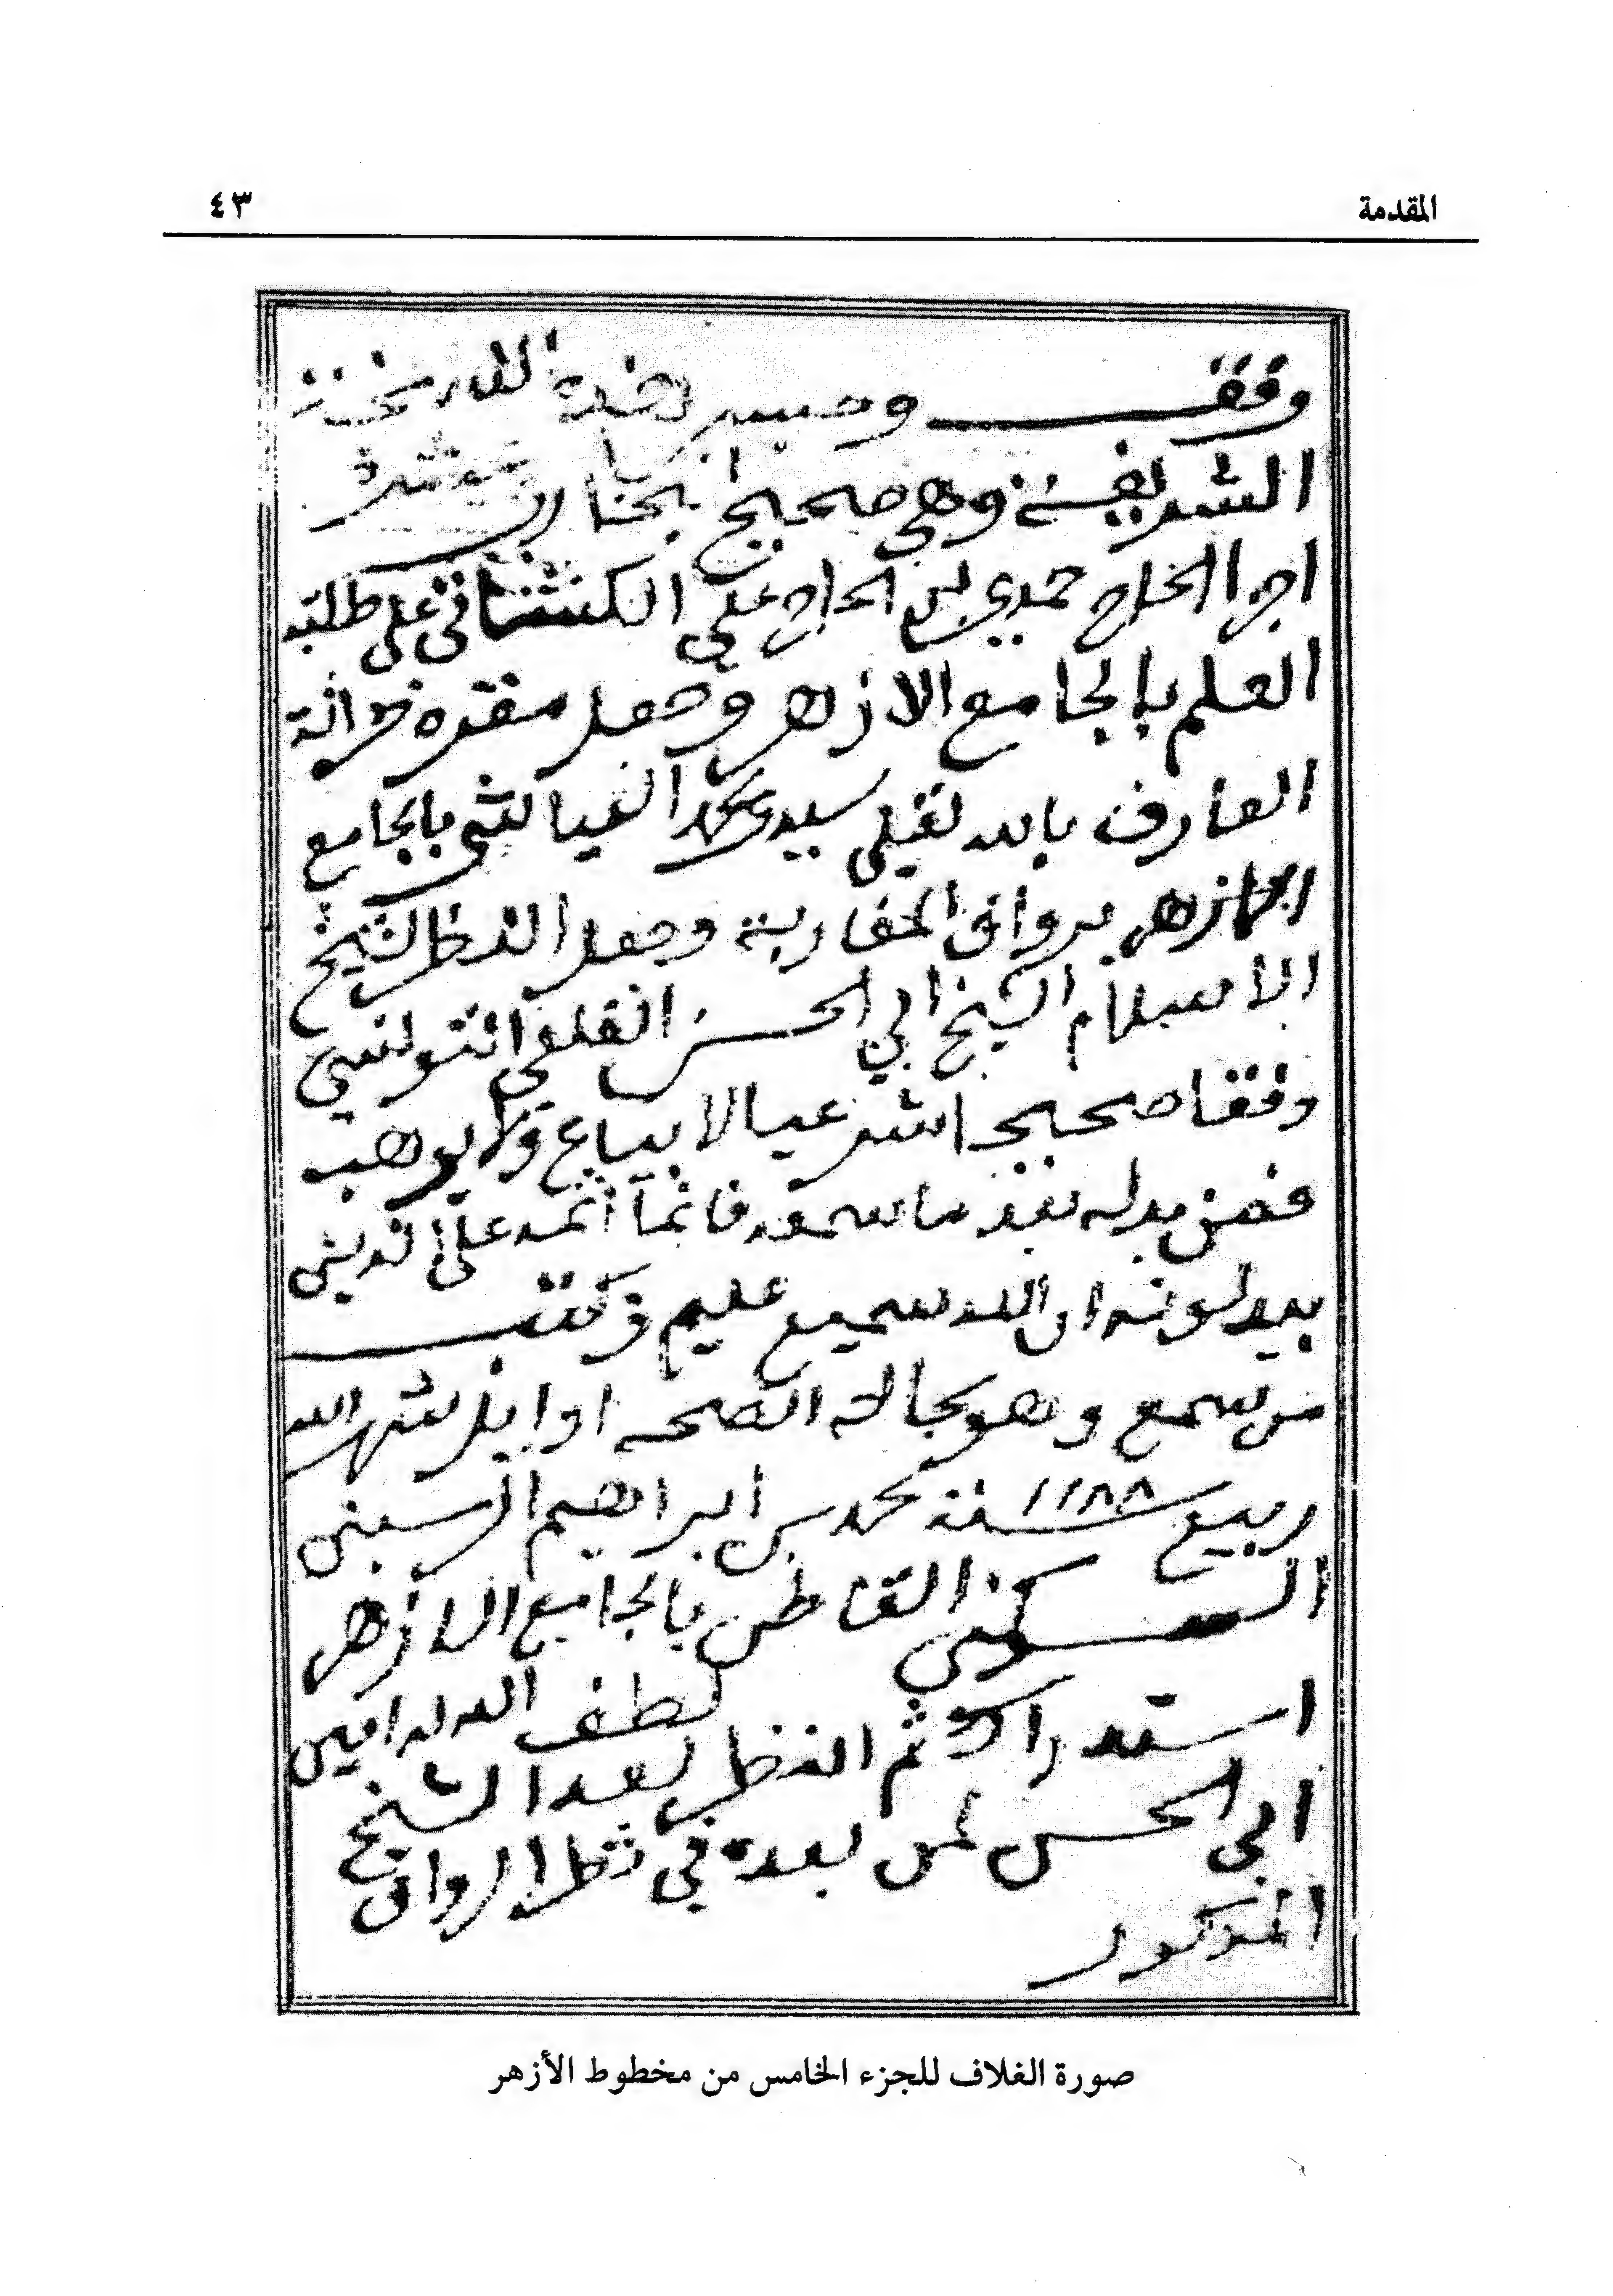 المقدمة
٤٣
وقف وحبس هذه
الشريفة وهي صحيح البخاري
الحاج حمدي بن الحاج علي على طلبة
العلم بالجامع الازهر وجعل مقره خزانة
العارف بالله سيدي محمد بالجامع
الازهر برواق المغاربة وجعل النظر لشيخ
الاسلام الشيخ ابي الحسن القلعي التونسي
وقفا صحيحا شرعيا لا يباع ولا يوهب
فمن بدله بعد ما سمعه فانما اثمه على الذين
يبدلونه ان الله سميع عليم وكتب
من سمع وهو بحالة الصحه اوايل شهر الله
ربيع سنة ١١٨٨ محمد بن ابراهيم
القاطن بالجامع الازهر
لطف الله له امين
استدراك ثم النظر بعد الشيخ
ابي الحسن لمن بعده في نظر الرواق
المذكور
صورة الغلاف للجزء الخامس من مخطوط الأزهر